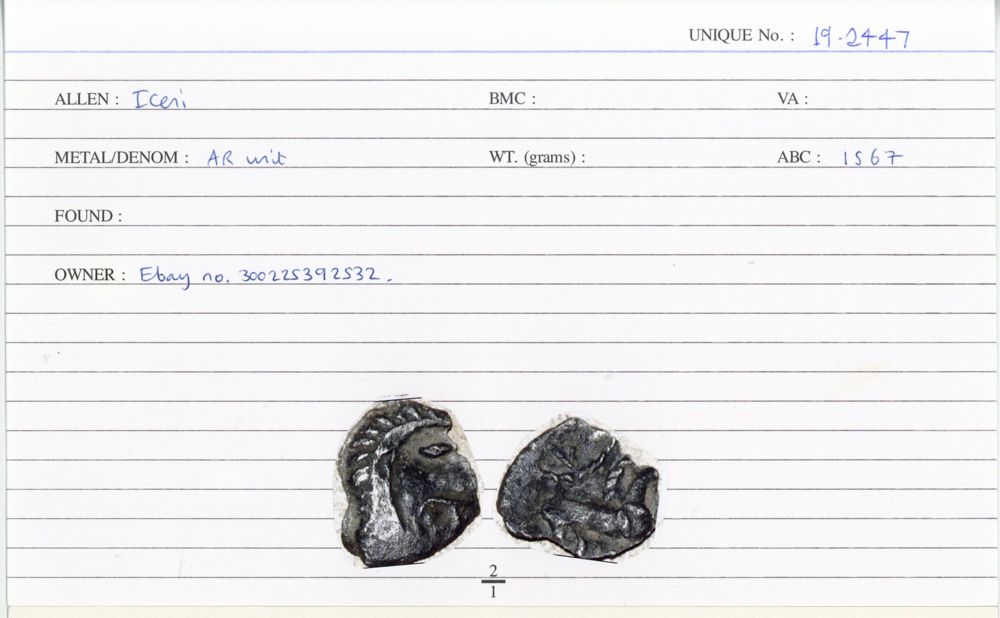 UNIQUE No. : 19.2447
ALLEN : Iceni BMC : VA :
METAL/DENOM : AR unit WT. (grams) : ABC : 1567
FOUND :
OWNER : Ebay no. 300225392532.
2
1